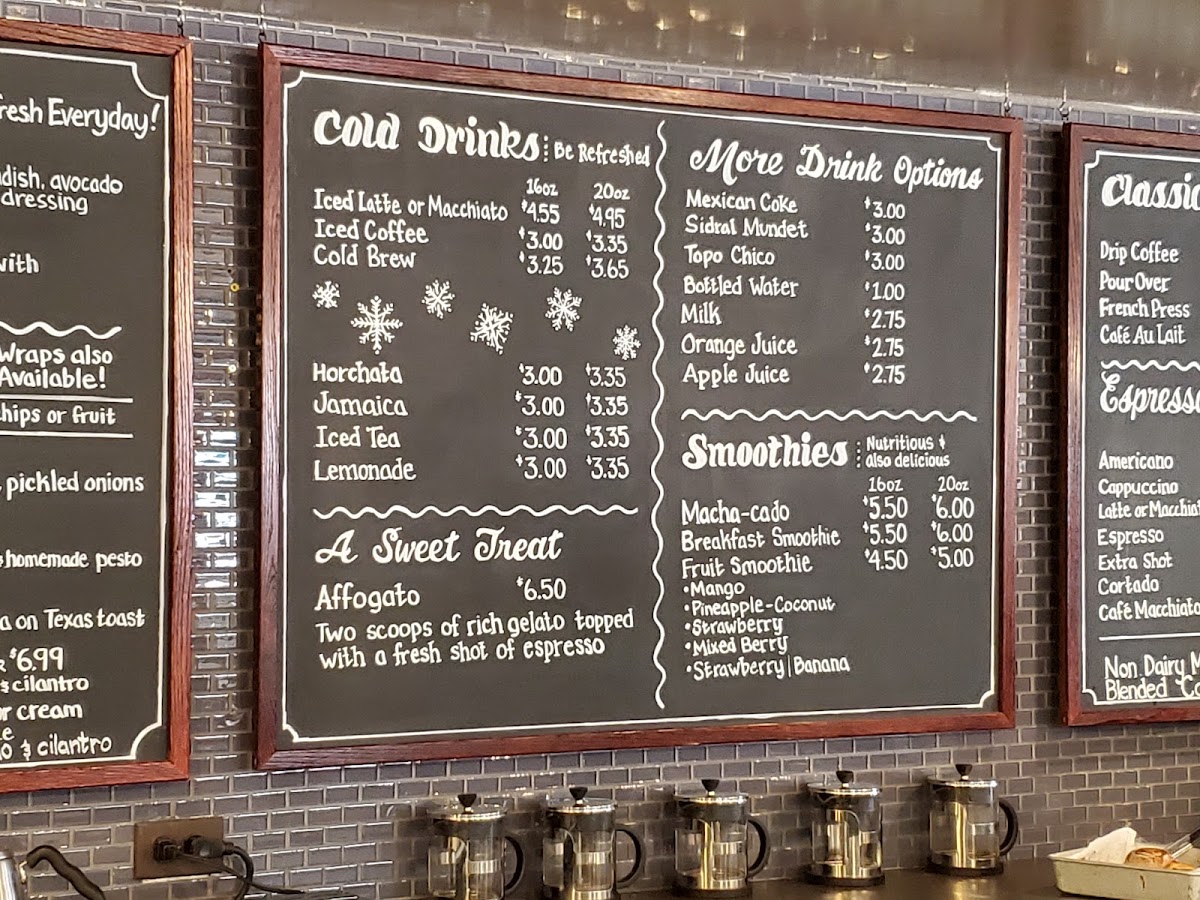 resh Everyday!
dish, avocado
dressing
with
Wraps also
Available!
chips or fruit
pickled onions
homemade pesto
a on Texas toast
$6.99
& cilantro
r cream
& cilantro
Cold Drinks Be Refreshed
16oz 20oz
Iced Latte or Macchiato $4.55 $4.95
Iced Coffee $3.00 $3.35
Cold Brew $3.25 $3.65
Horchata $3.00 $3.35
Jamaica $3.00 $3.35
Iced Tea $3.00 $3.35
Lemonade $3.00 $3.35
A Sweet Treat
Affogato $6.50
Two scoops of rich gelato topped
with a fresh shot of espresso
More Drink Options
Mexican Coke $3.00
Sidral Mundet $3.00
Topo Chico $3.00
Bottled Water $1.00
Milk $2.75
Orange Juice $2.75
Apple Juice $2.75
Smoothies Nutritious &
also delicious
16oz 20oz
Macha-cado $5.50 $6.00
Breakfast Smoothie $5.50 $6.00
Fruit Smoothie $4.50 $5.00
•Mango
•Pineapple-Coconut
•Strawberry
•Mixed Berry
•Strawberry|Banana
Classic
Drip Coffee
Pour Over
French Press
Café Au Lait
Espresso
Americano
Cappuccino
Latte or Macchiat
Espresso
Extra Shot
Cortado
Café Macchiato
Non Dairy M
Blended "Co